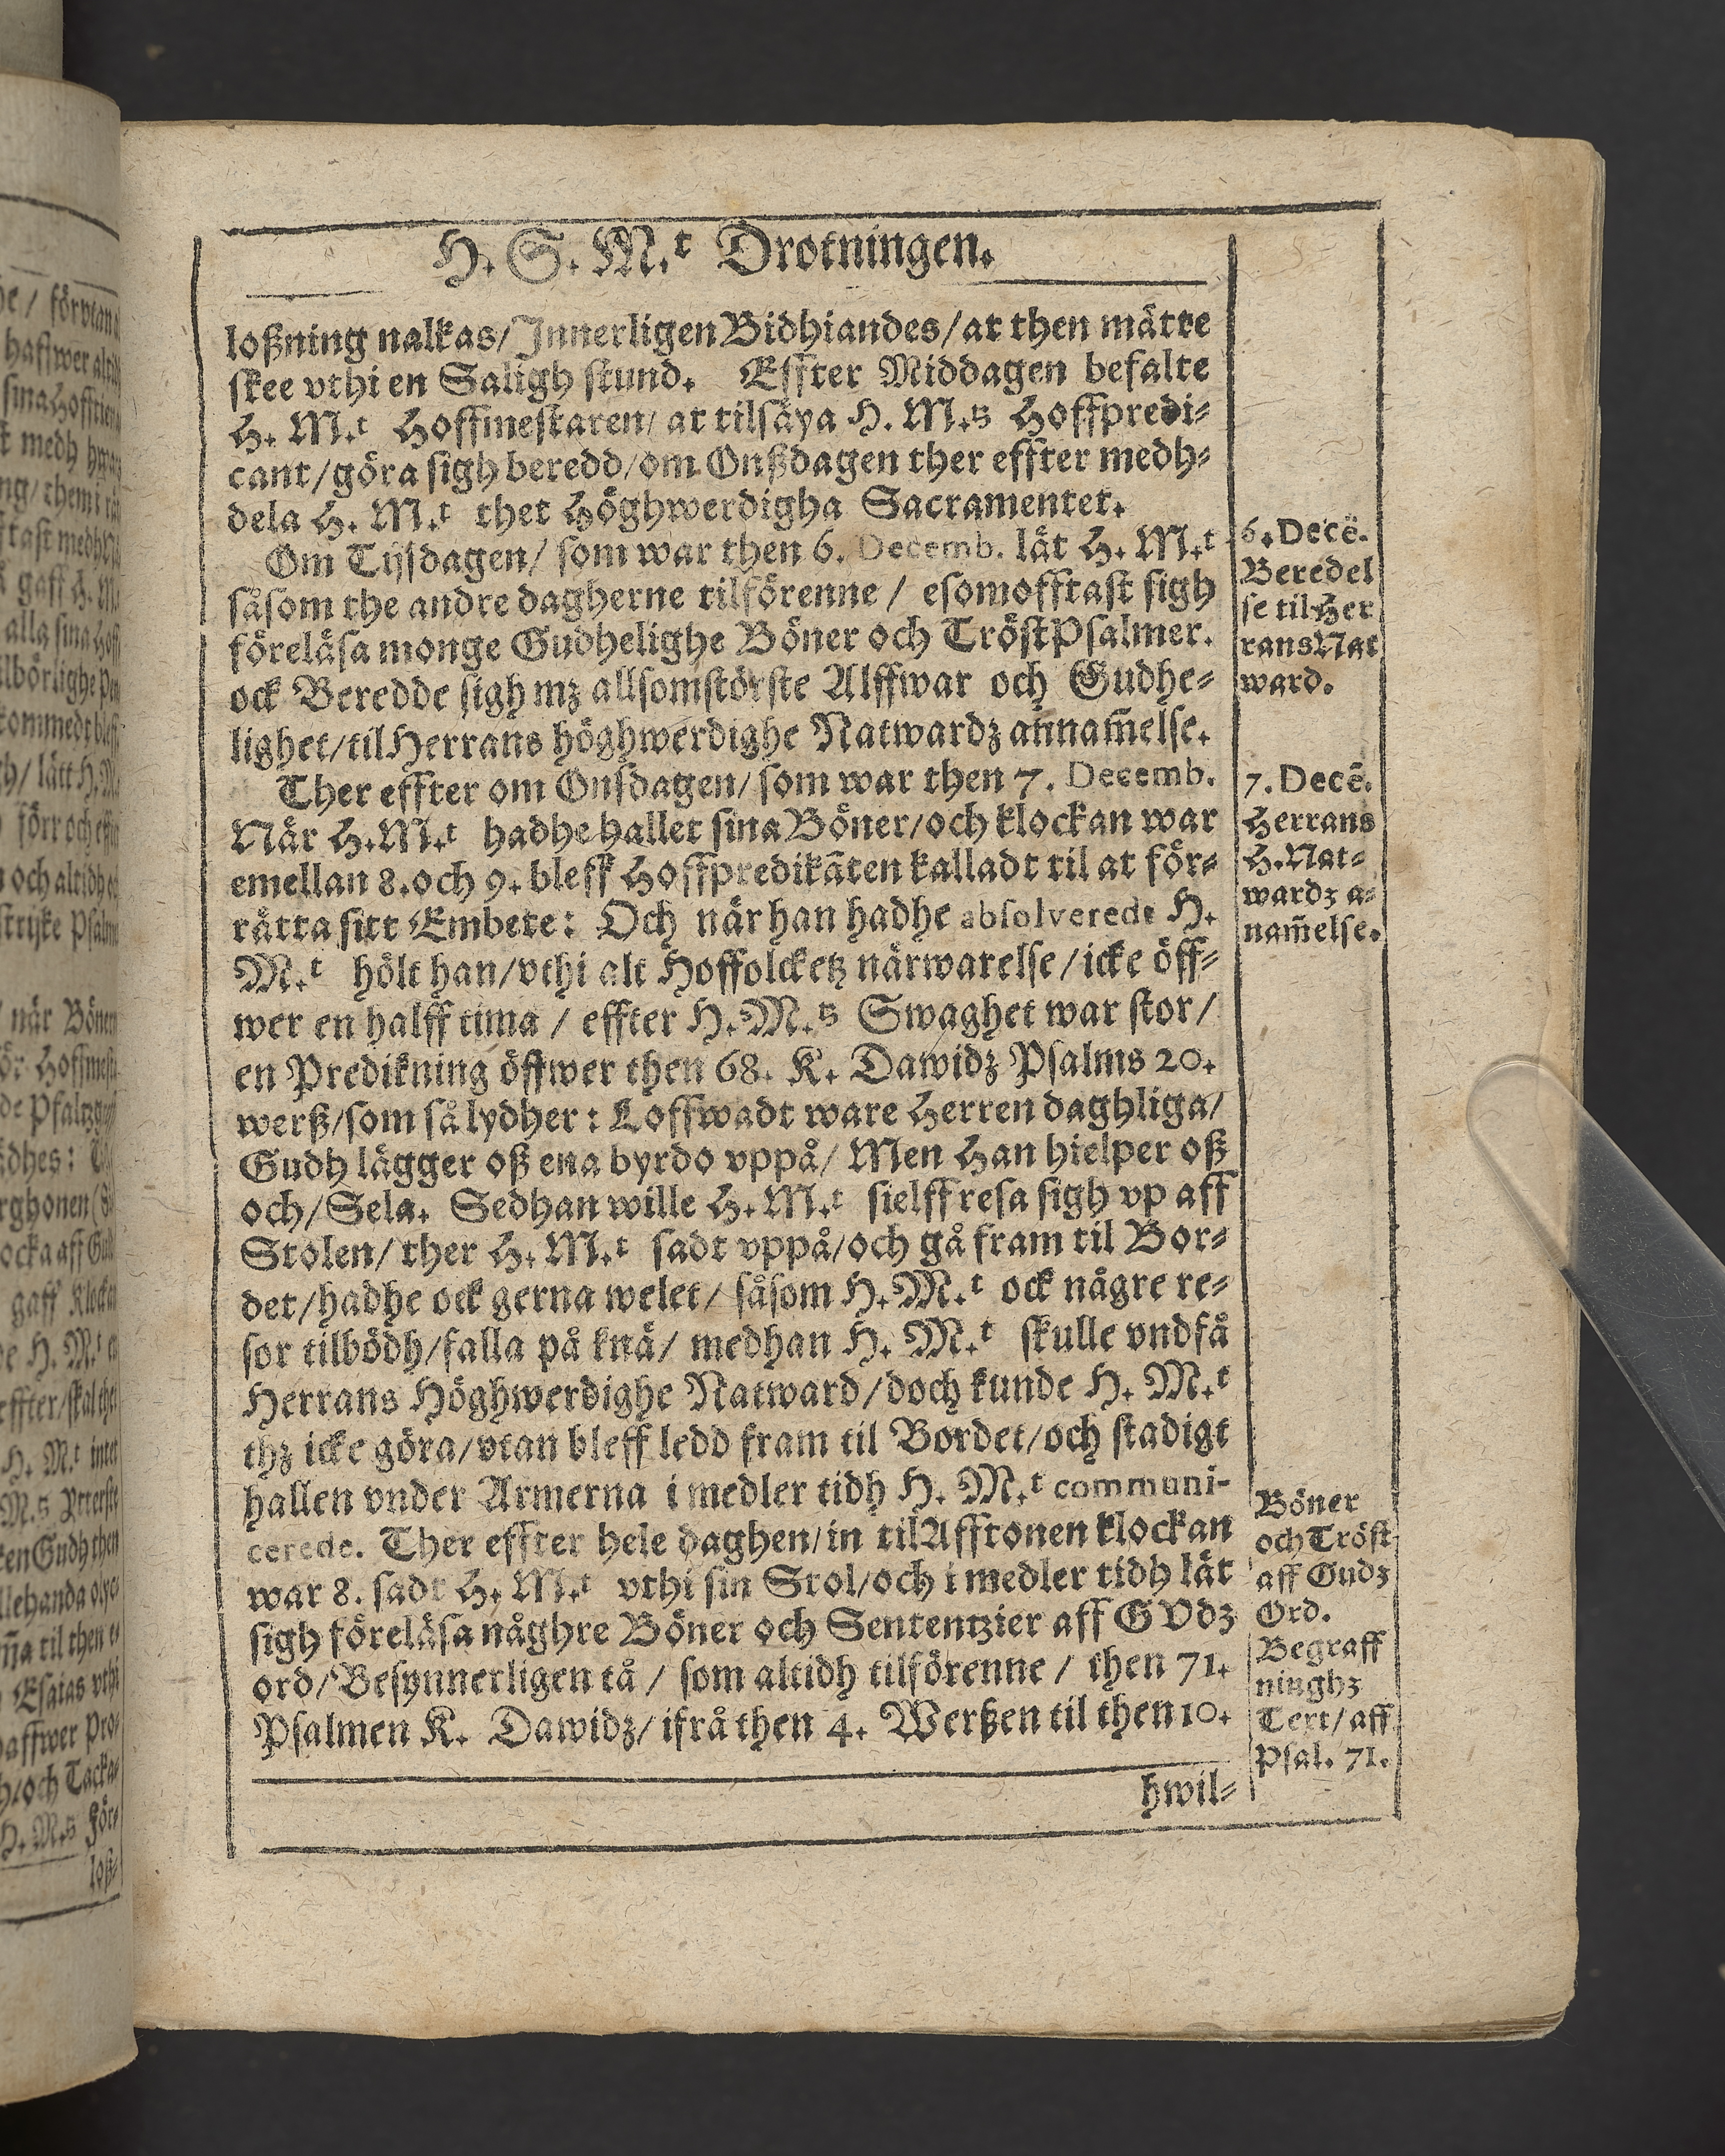 H. S. M.t Drotningen.
loßning nalkas/ Innerligen Bidhiandes/ at then mätte
skee vthi en Saligh stund. Effter Middagen befalte
H. M.t Hoffmestaren/ at tilsäya H. M.ts Hoffpredi-
cant/ göra sigh beredd/ om Onßdagen ther effter medh-
dela H. M.t thet Höghwerdigha Sacramentet.
Om Tijsdagen/ som war then 6. Decemb. lät H. M.t
såsom the andre dagherne tilförenne / esomofftast sigh
föreläsa monge Gudhelighe Böner och TröstPsalmer.
ock Beredde sigh mz allsomstörste Alffwar och Gudhe-
lighet/ til Herrans höghwerdighe Natwardz an̄nam̄else.
Ther effter om Onsdagen/ som war then 7. Decemb.
När H. M.t hadhe hallet sina Böner/ och klockan war
emellan 8. och 9. bleff Hoffpredikāten kalladt til at för-
rätta sitt Embete: Och när han hadhe absolverede H.
M.t hölt han/ vthi alt Hoffolcketz närwarelse/ icke öff-
wer en halff tima / effter H. M.ts Swaghet war stor/
en Predikning öffwer then 68. K. Dawidz Psalms 20.
werß/ som så lydher: Loffwadt ware Herren daghliga/
Gudh lägger oß ena byrdo vppå/ Men Han hielper oß
och/ Sela. Sedhan wille H. M.t sielff resa sigh vp aff
Stolen/ ther H. M.t sadt vppå/ och gå fram til Bor-
det/ hadhe ock gerna welet/ såsom H. M.t ock någre re-
sor tilbödh/ falla på knä/ medhan H. M.t skulle vndfå
Herrans Höghwerdighe Natward/ doch kunde H. M.t
thz icke göra/ vtan bleff ledd fram til Bordet/ och stadigt
hallen vnder Armerna i medler tidh H. M.t communi-
cerede. Ther effter hele daghen/ in til Afftonen klockan
war 8. sadt H. M.t vthi sin Stol/ och i medler tidh lät
sigh föreläsa någhre Böner och Sententzier aff GVdz
ord/ Besynnerligen tå / som altidh tilförenne / then 71.
Psalmen K. Dawidz/ ifrå then 4. Werßen til then 10.
hwil-
6. Decē.
Beredel
se til Her
rans Nat
ward.
7. Decē.
Herrans
H. Nat-
wardz a-
nam̄else.
Böner
och Tröst
aff Gudz
Ord.
Begraff
ninghz
Text/ aff
Psal. 71.